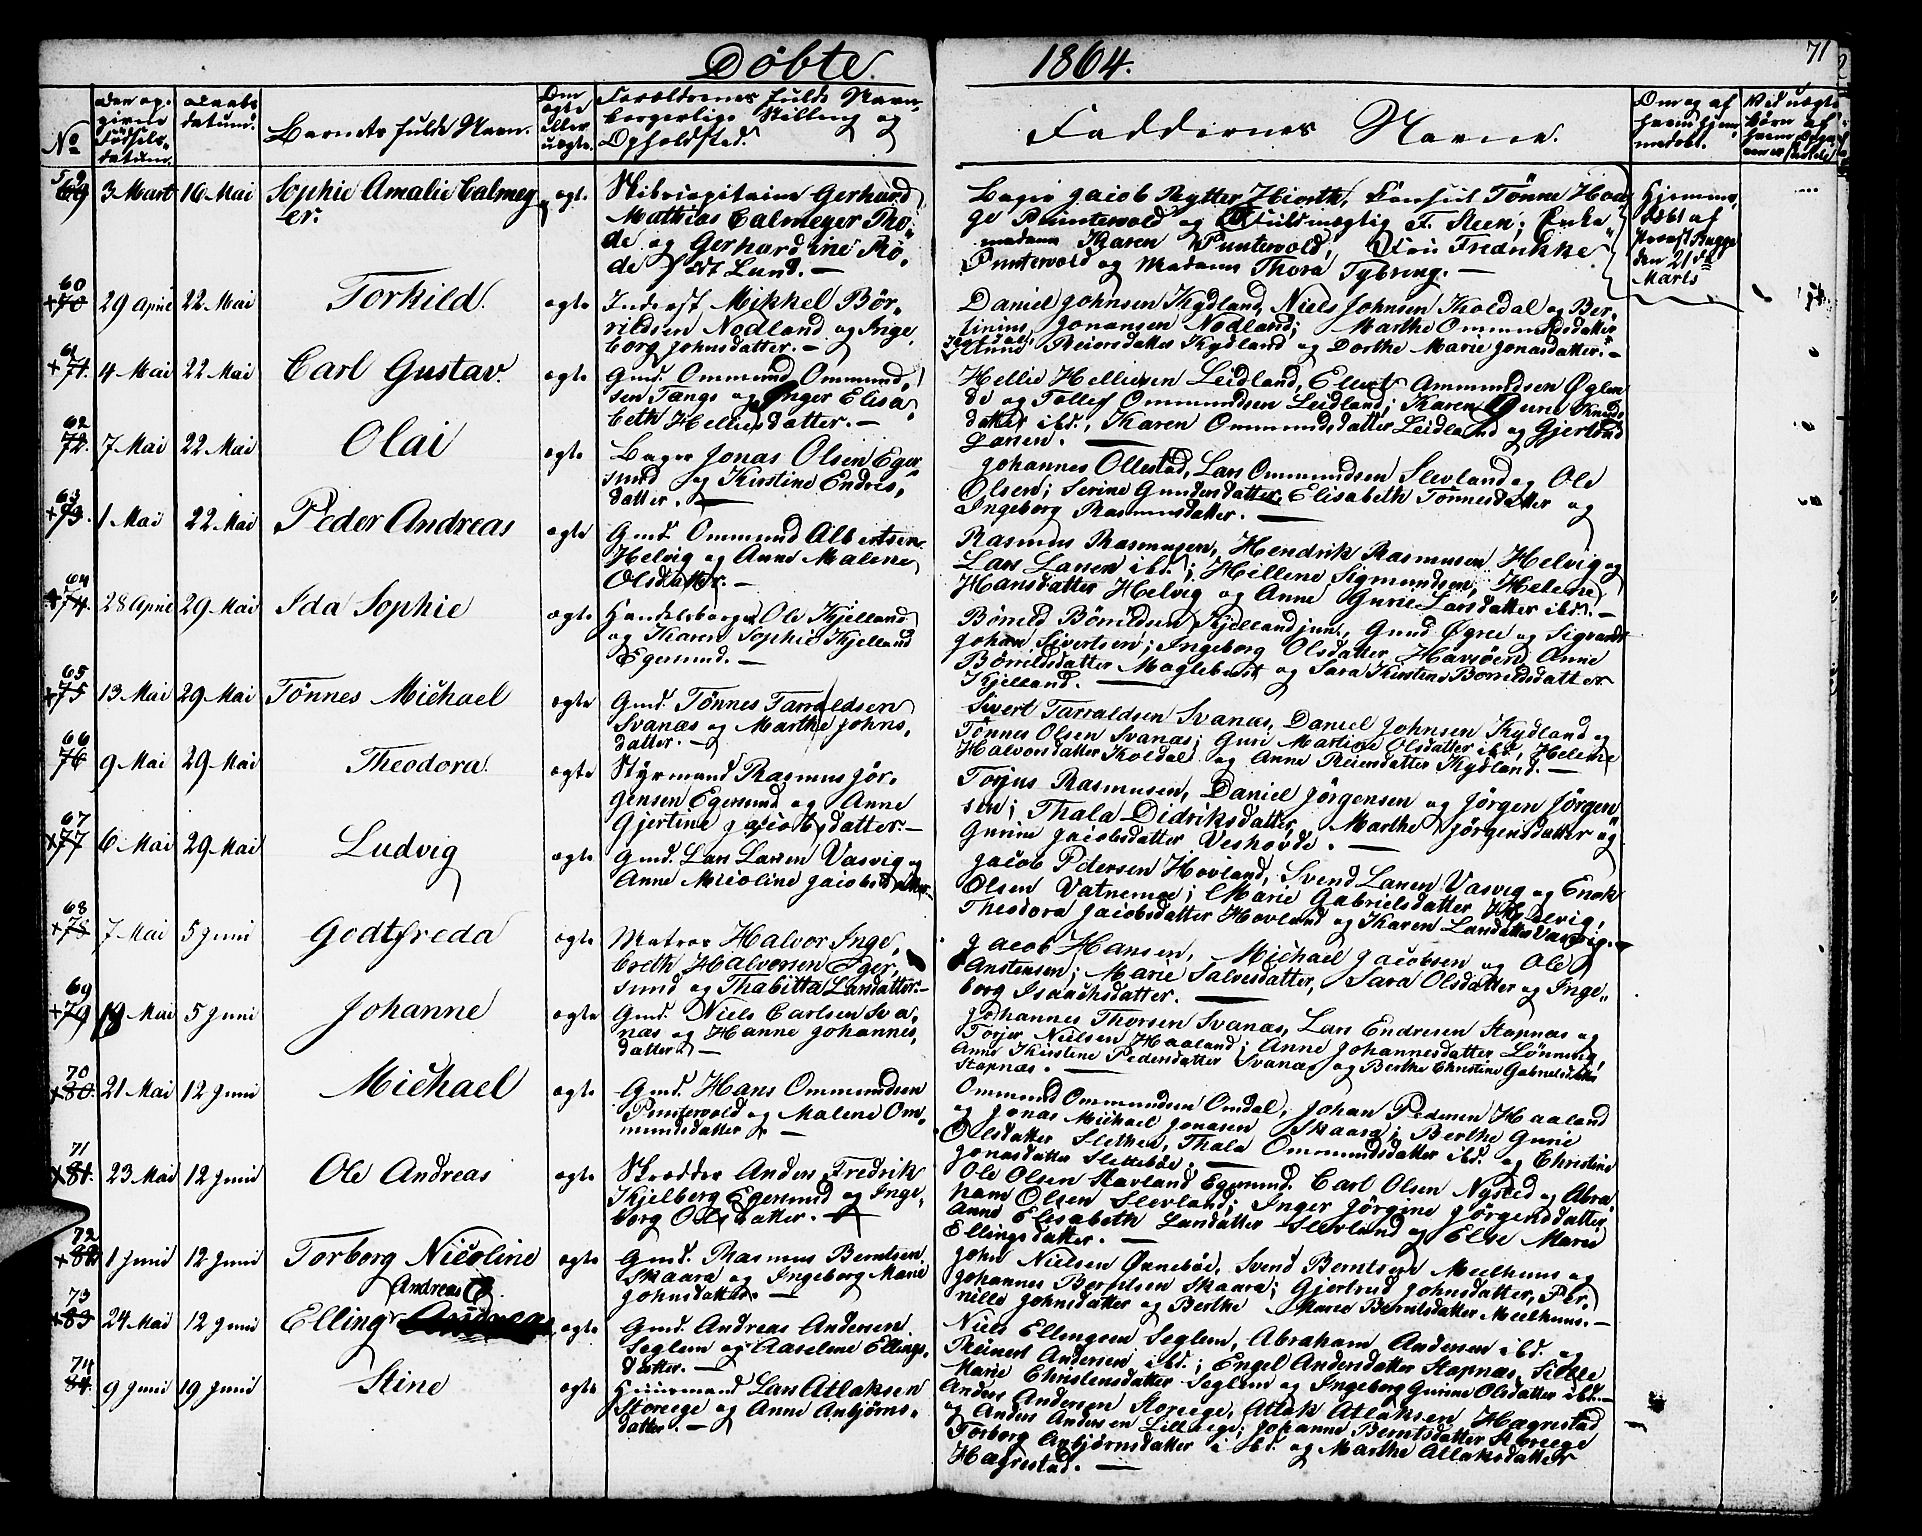 Døbte 1864. 71
No
den op-
givne
Fødsels-
datum.
Daabs
datum.
Barnets fulde Navn.
Om
ægte
eller
uægte.
Forældrenes fulde Navn,
borgerlige Stilling og
Opholdsted.
Faddernes Navne.
Om og af
hvem hjem-
medøbt.
59
69 3 Mart 16 Mai Sophie Amalie Calmey
er. ægte.
Skibscapitaine Gerhard
Mathias Calmeyer Tho-
de og Gerhardine Rø-
de f. Lund. —
Bager Jacob Rytter Hiorth, Consul Tønne Hod
ge Puntervold og Fuldmægtig F. Steen; Enke-
madame Karen Puntervold, Fredrikke
Puntervold og Madame Thora Tybring. —
Hjemme-
døbt af
Provst Bugge
den 21de
Marts
60
+70 29 April 22 Mai Torkild. ægte
Inderst Mikkel Bør-
rildsen Nodland og Inge-
borg Johnsdatter. —
Daniel Johnsen Kydland, Niels Johnsen Koldal og Ber-
tinius Jonassen Nodland; Marthe Ommundsdatter
Koldal, Anne Reiersdatter Kydland og Dorthe Marie Jonasdatter. —
61
+71. 4 Mai 22 Mai Carl Gustav. ægte
Gmd. Ommund Ommund-
sen Tengs og Inger Elisa-
beth Helliesdatter. —
Hellie Helliesen Leidland, Ellert Ammundsen Øglen
de og Tollef Ommundsen Leidland; Karen Gurie Knuds-
datter ibd., Karen Ommundsdatter Leidland og Gjertrud
Larsen. —
62
72. 7 Mai 22 Mai Olai ægte
Bager Jonas Olsen Eger-
sund og Kirstine Endres-
datter. —
Johannes Ollestad, Lars Ommundsen Slevland og Ole
Olsen; Serine Gundersdatter, Elisabeth Tønnesdatter og
Ingeborg Rasmusdatter. —
63
+73. 1 Mai 22 Mai Peder Andreas ægte
Gmd. Ommund Albertsen
Helvig og Anne Malene
Olsdatter. —
Rasmus Rasmusen, Hendrik Rasmusen Helvig og
Lars Larsen ibd.; Hellene Sigmundsen, Helene
Hansdatter Helvig og Anne Gurie Larsdatter ibd. —
64
+74. 28 April 29 Mai Ida Sophie ægte
Handelsborger Ole Kjelland
og Karen Sophie Kjelland
Egersund. —
Børrild Børrildsen Kjelland jun., Gund Øgree og Sigvardt
Johan Sivertsen; Ingeborg Olsdatter Havsøen, Anne
Børrildsdatter Maglebust og Sara Kirstine Børrildsdatter
Kjelland. —
65
+75 13 Mai 29 Mai Tønnes Michael ægte
Gmd. Tønnes Tarraldsen
Svanæs og Marthe Johns-
datter. —
Sivert Tarraldsen Svanæs, Daniel Johnsen Kydland og
Tønnes Olsen Svanæs; Guri Martine Olsdatter ibd., Helene
Halvorsdatter Koldal og Anne Reiersdatter Kydland. —
66
76 9 Mai 29 Mai Theodora. ægte
Styrmand Rasmus Jør-
gensen Egersund og Anne
Gjertine Jacobsdatter. —
Torjus Rasmusen, Daniel Jørgensen og Jørgen Jørgen-
sen; Thala Didriksdatter, Marthe Jørgensdatter og
Gurine Jacobsdatter Veshovde. —
67
+77 6 Mai 29 Mai Ludvig ægte
Gmd. Lars Larsen Vasvig og
Anne Nicoline Jacobsdatter. —
Jacob Pedersen Hovland, Svend Larsen Vasvig og Enok
Olsen Vatnemoe; Marie Gabrielsdatter Helvig,
Theodora Jacobsdatter Hovland og Karen Larsdatter Vasvig. —
68
+78 7 Mai 5 Juni Godtfreda ægte
Matros Halvor Inge-
breth Halvorsen Eger-
sund og Thabitta Larsdatter. —
Jacob Hansen, Michael Jacobsen og Ole
Anstensen; Marie Salvesdatter, Sara Olsdatter og Inge-
borg Isaachsdatter. —
69
+79 19 Mai 5 Juni Johanne ægte
Gmd. Niels Carlsen Sva-
næs og Hanne Johannes-
datter. —
Johannes Thorsen Svanæs, Lars Endresen Stapnæs og
Torjer Nielsen Haaland; Anne Johannesdatter Lønning,
Anne Kirstine Pedersdatter Svanæs og Berthe Christine Gabrielsdatter
Stapnæs. —
70
+80. 21 Mai 12 Juni Michael ægte
Gmd. Hans Ommundsen
Puntervold og Malene Om-
mundsdatter. —
Ommund Ommundsen Omdal, Johan Pedersen Haaland
og Jonas Michael Jonasen Skaara; Berthe Gurie
Olsdatter Slethen, Thala Ommundsdatter ibd. og Christine
Jonasdatter Slettebøe. —
71
+81. 23 Mai 12 Juni Ole Andreas ægte
Skrædder Anders Fredrik
Kjelberg Egersund og Inge-
borg Olsdatter. —
Ole Olsen Havland Egersund, Carl Olsen Nysted og Abra-
ham Olsen Slevland; Inger Jørgine Jørgensdatter,
Anne Elisabeth Larsdatter Slevland og Else Marie
Ellingsdatter. —
72
+82 1 Juni 12 Juni Torborg Nicoline ægte
Gmd. Rasmus Berntsen
Skaara og Ingeborg Marie
Johnsdatter. —
John Nielsen Ørnebøe, Svend Berntsen Meelhuus og
Johannes Berntsen Skaara; Gjertrud Johnsdatter, Per-
nille Johnsdatter og Berthe Marie Berntsdatter Meelhuus. —
73
+83 24 Mai 12 Juni Elling Andreas ægte
Andreas
Gmd. Andreas Andersen
Seglem og Aaselene Ellings-
datter. —
Niels Ellingsen Seglem, Abraham Andersen ibd. og
Reinert Andersen ibd.; Engel Andersdatter Stapnæs, Sille
Marie Christensdatter Seglem og Ingeborg Gurine Olsdatter ibd. —
74
84. 9 Juni 19 Juni Stine ægte
Huusmand Lars Atlaksen
Storeege og Anne Anbjørns-
datter. —
Anders Andersen Storeege, Atlak Atlaksen Hægrestad
og Anders Andersen Lilleege; Johanne Berntsdatter Storeege
Torborg Anbjørnsdatter ibd. og Marthe Atlaksdatter
Hægrestad. —